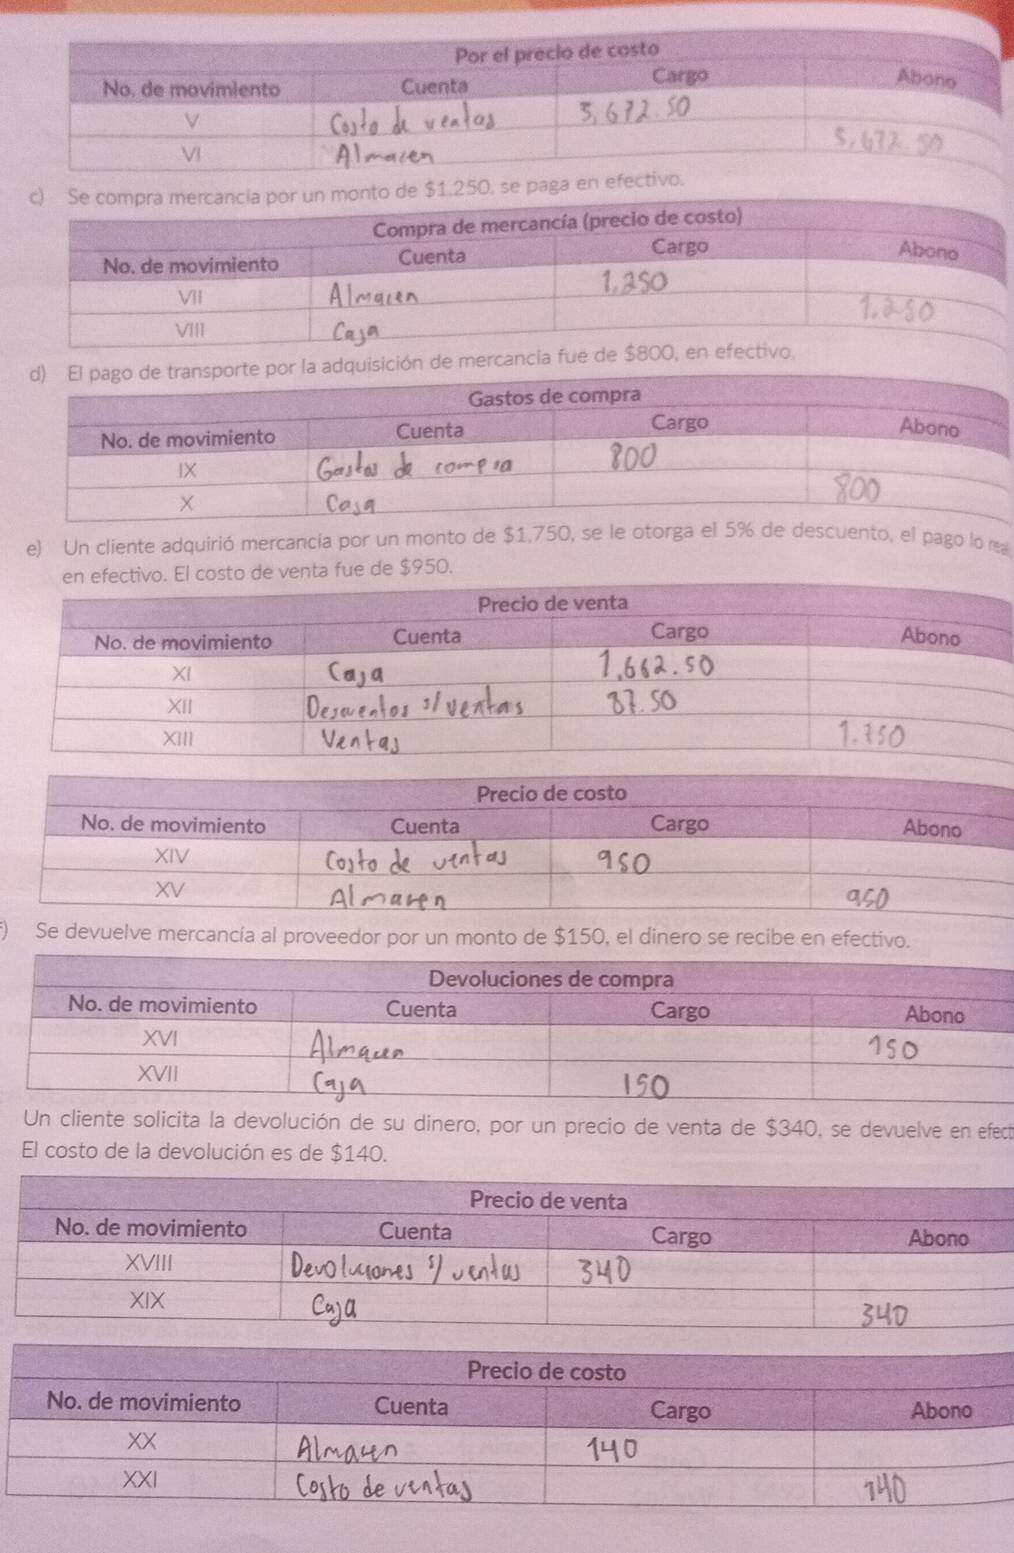 Por el precio de costo
No. de movimiento Cuenta Cargo Abono
V Costo de ventas 5,672.50
VI Almacen 5,672.50
c) Se compra mercancía por un monto de $1,250, se paga en efectivo.
Compra de mercancía (precio de costo)
No. de movimiento Cuenta Cargo Abono
VII Almacen 1,250
VIII Caja 1,250
d) El pago de transporte por la adquisición de mercancía fue de $800, en efectivo.
Gastos de compra
No. de movimiento Cuenta Cargo Abono
IX Gastos de compra 800
X Caja 800
e) Un cliente adquirió mercancía por un monto de $1,750, se le otorga el 5% de descuento, el pago lo rea
en efectivo. El costo de venta fue de $950.
Precio de venta
No. de movimiento Cuenta Cargo Abono
XI Caja 1,662.50
XII Descuentos s/ ventas 87.50
XIII Ventas 1.750
Precio de costo
No. de movimiento Cuenta Cargo Abono
XIV Costo de ventas 950
XV Almacen 950
) Se devuelve mercancía al proveedor por un monto de $150, el dinero se recibe en efectivo.
Devoluciones de compra
No. de movimiento Cuenta Cargo Abono
XVI Almacen 150
XVII Caja 150
Un cliente solicita la devolución de su dinero, por un precio de venta de $340, se devuelve en efect
El costo de la devolución es de $140.
Precio de venta
No. de movimiento Cuenta Cargo Abono
XVIII Devoluciones s/ ventas 340
XIX Caja 340
Precio de costo
No. de movimiento Cuenta Cargo Abono
XX Almacen 140
XXI Costo de ventas 140